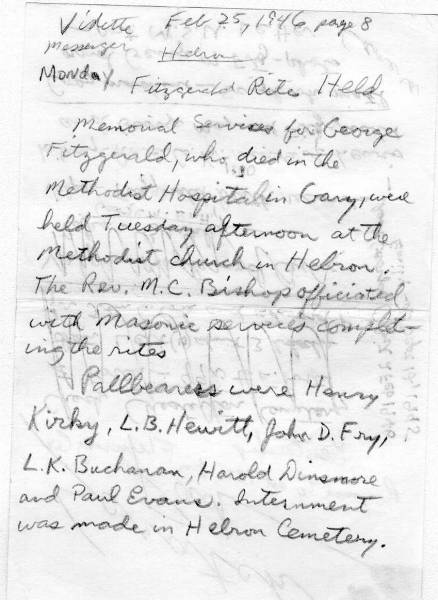 Vidette Feb 25, 1946 page 8
Messenger Hebron
Monday
Fitzgerald Rite Held
Memorial Services for George
Fitzgerald, who died in the
Methodist Hospital in Gary, were
held Tuesday afternoon at the
Methodist church in Hebron.
The Rev. M.C. Bishop officiated
with Masonic services complet-
ing the rites
Pallbearers were Henry
Kirby, L.B. Hewitt, John D. Fry,
L.K. Buchanan, Harold Dinsmore
and Paul Evans. Internment
was made in Hebron Cemetery.